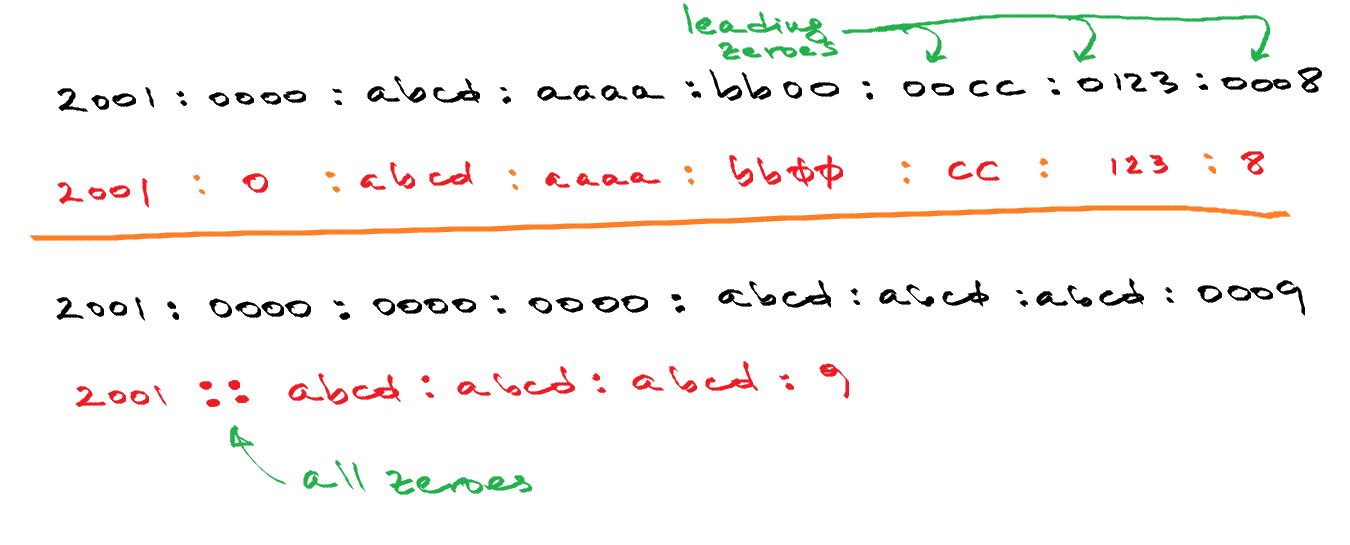 leading
zeroes
2001 : 0000 : abcd : aaaa : bb00 : 00cc : 0123 : 0008
2001 : 0 : abcd : aaaa : bb00 : cc : 123 : 8
2001 : 0000 : 0000 : 0000 : abcd : abcd : abcd : 0009
2001 :: abcd : abcd : abcd : 9
all zeroes